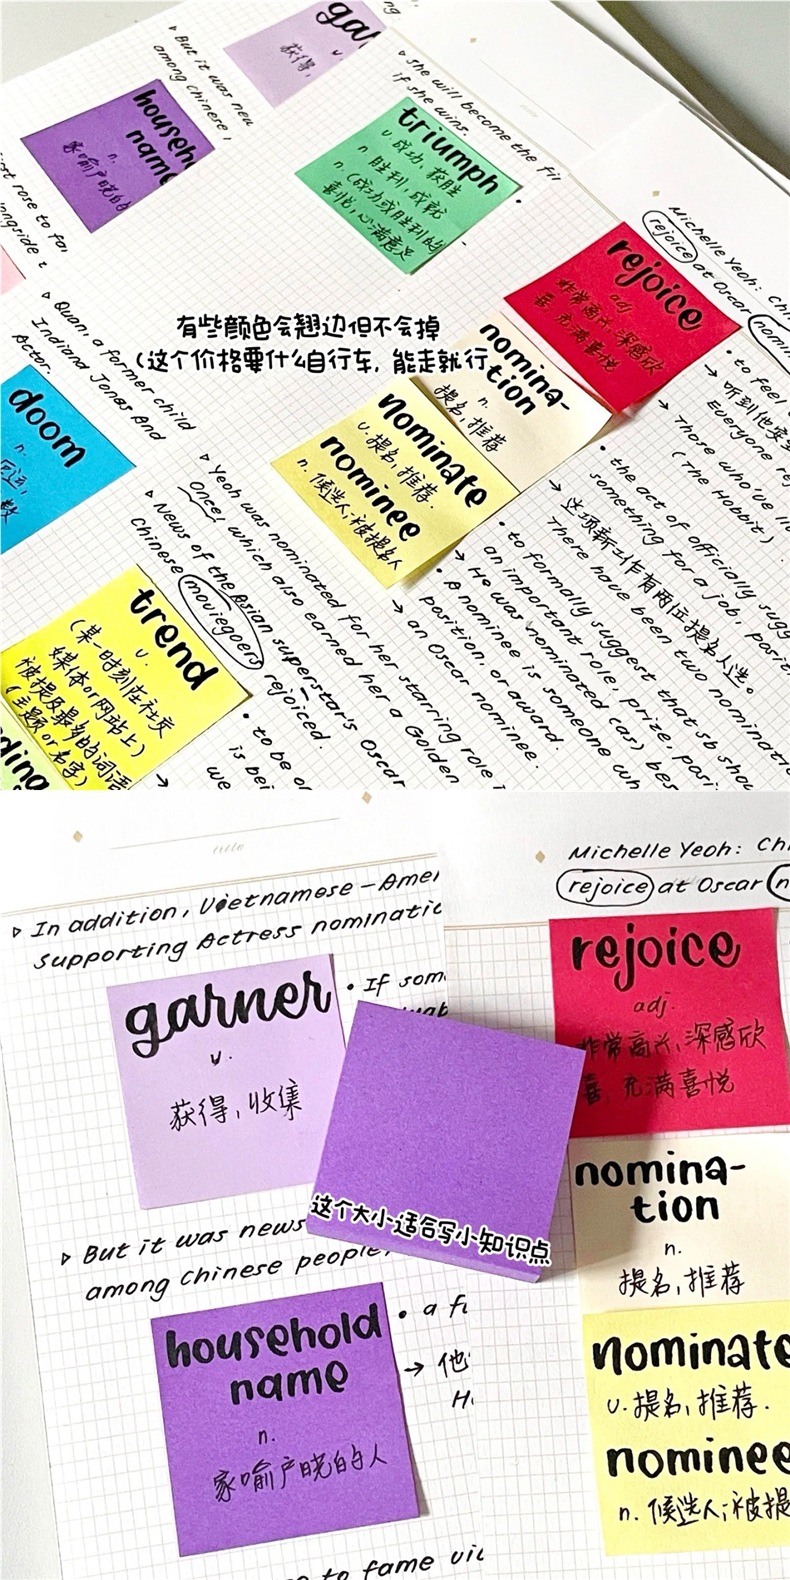 gar
获得,
But it was new
among Chinese
household
name
n.
家喻户晓的
She will become the fir
if she wins.
triumph
v. 成功, 获胜
n. 胜利, 成就
n. (成功或胜利的
喜悦, 心满意足
Michelle Yeoh: Chi
rejoice at Oscar nomin
rejoice
adj.
非常高兴, 深感欣
喜, 充满喜悦
有些颜色会翘边但不会掉
(这个价格要什么自行车, 能走就行
nomina-
tion
n.
提名, 推荐
nominate
v. 提名, 推荐.
nominee
n. 候选人; 被提名人
irst rose to fa
ongside
Quan, a former child
Indiana Jones And
Actor.
doom
n.
Yeoh was nominated for her starring role i
Once! which also earned her a Golden
News of the Asian superstar's Oscar
Chinese moviegoers rejoiced.
trend
v.
(某一时刻在社交
媒体or网站上)
被提及最多的词语
(主题or名字)
ding
to feel
→ 听到他
Everyone rej
→ Those who've li
(The Hobbit).
the act of officially sugg
something for a job, positi
→ 这项新工作有两位提名人选。
There have been two nominati
to formally suggest that sb shou
an important role, prize, posi
→ He was nominated (as) bes
A nominee is someone wh
position, or award.
→ an Oscar nominee.
to be
is bei
we
title
In addition, Vietnamese-Amer
Supporting Actress nominatio
garner
v.
获得, 收集
If som
这个大小适合写小知识点
But it was news
among Chinese people,
household
name
n.
家喻户晓的人
a fi
→ 他
H
to fame via
Michelle Yeoh: Chi
rejoice at Oscar n
rejoice
adj.
非常高兴, 深感欣
喜, 充满喜悦
nomina-
tion
n.
提名, 推荐
nominate
v. 提名, 推荐.
nominee
n. 候选人; 被提